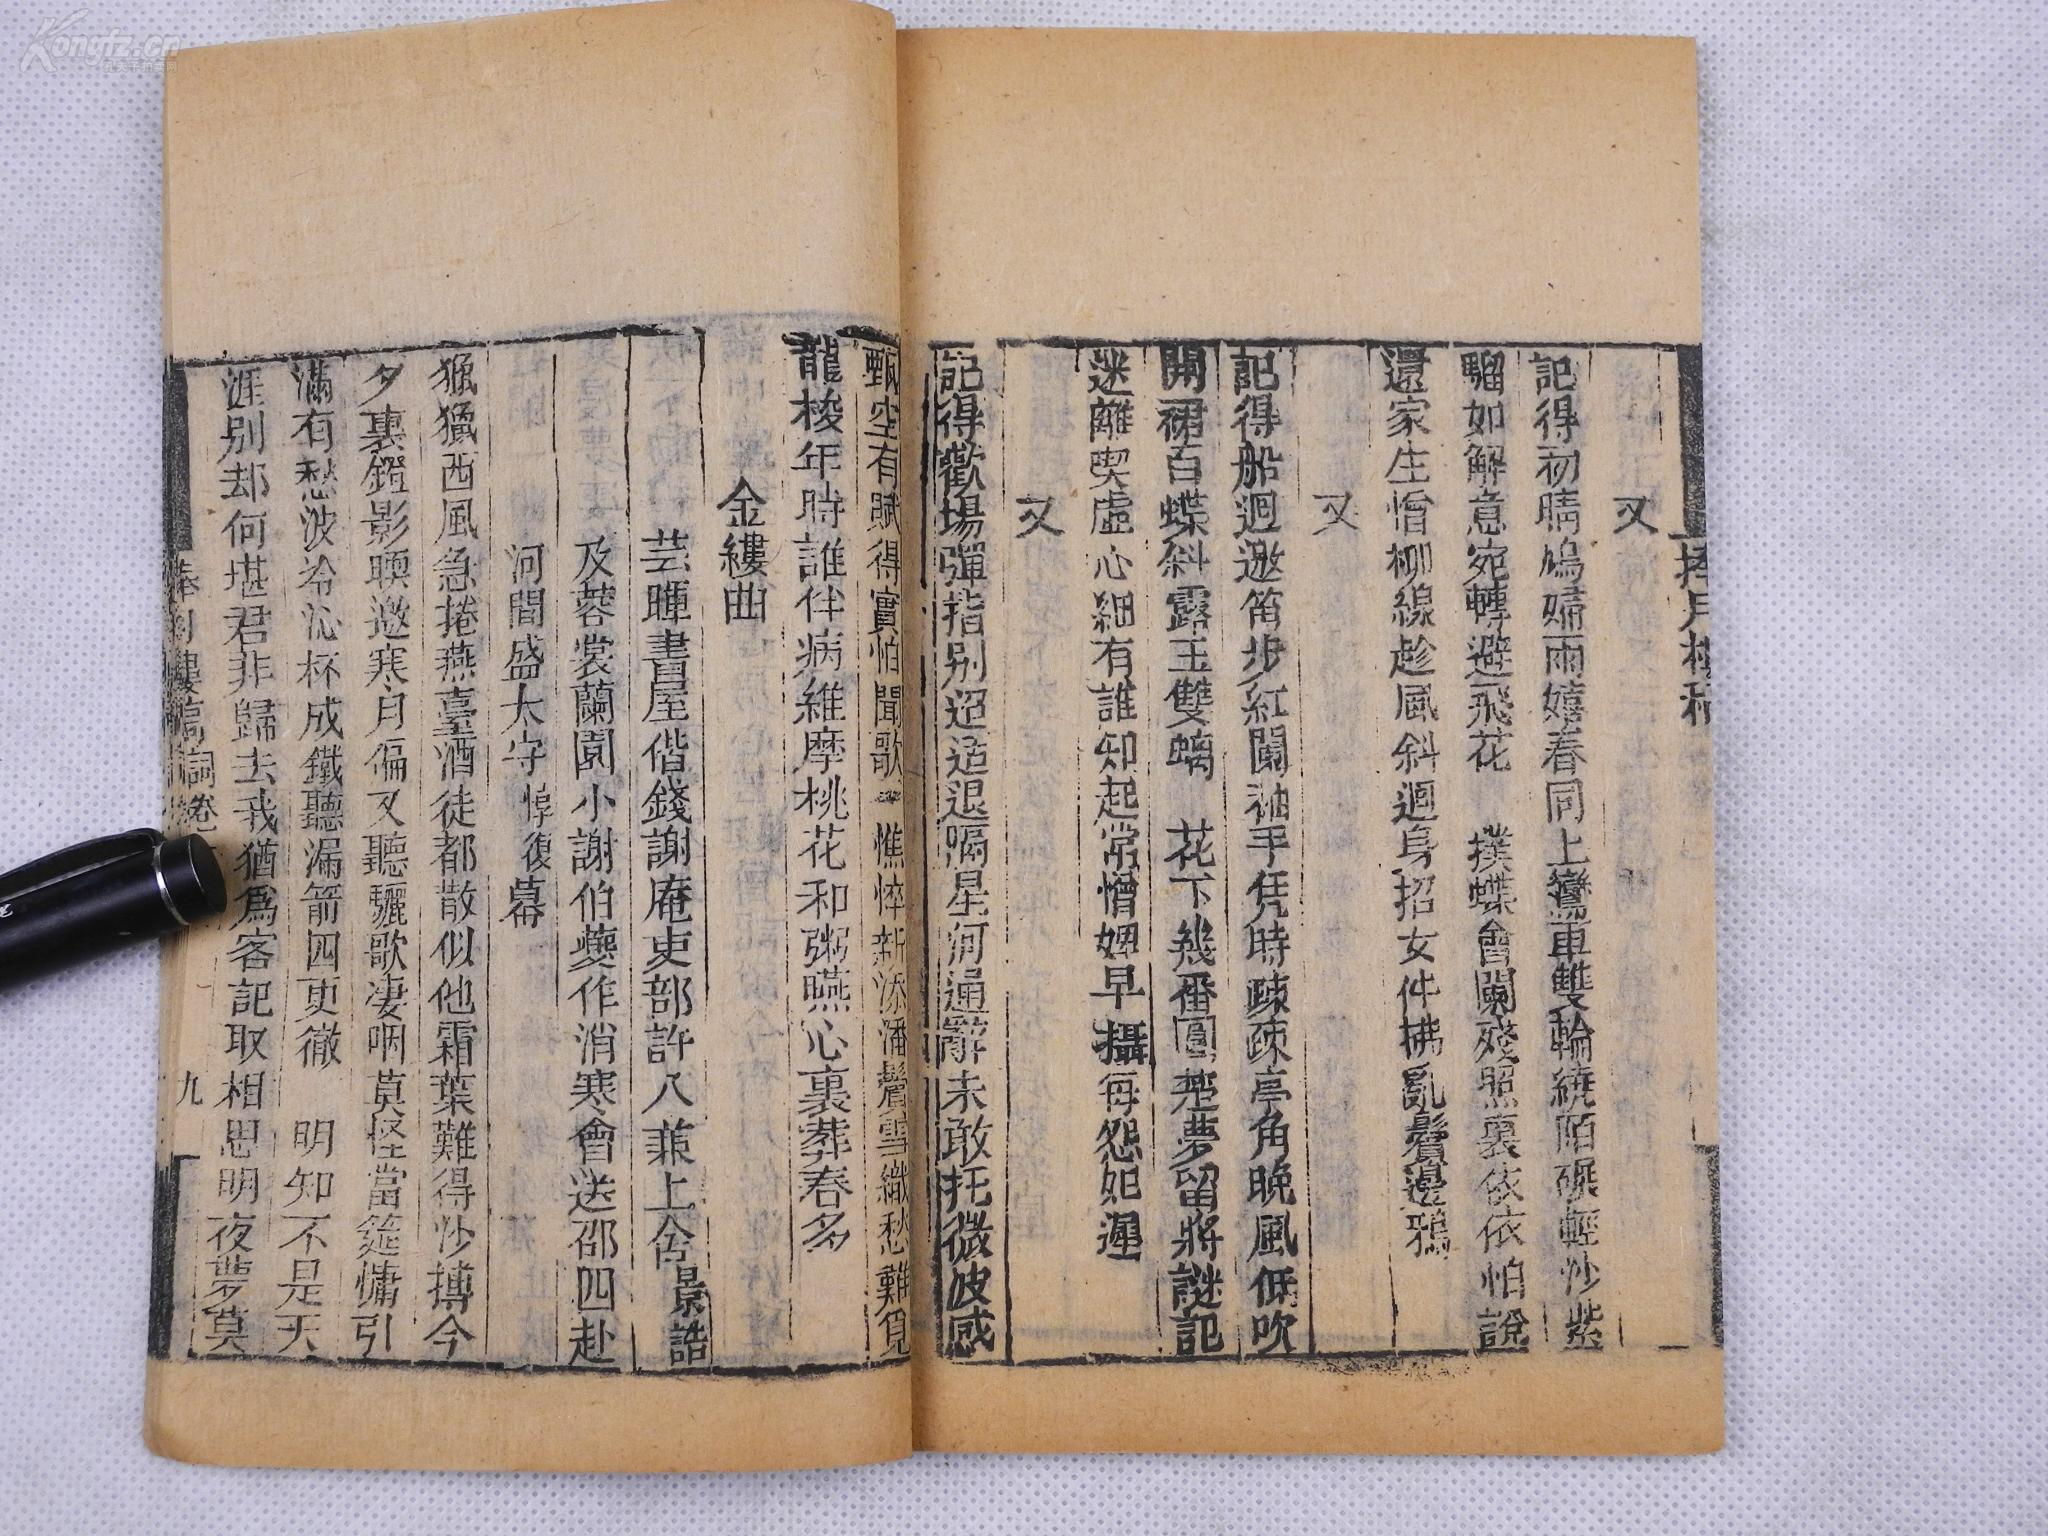 又
記得初晴鳩婦雨嬉春同上鸞車雙輪繞陌碾輕沙紫
騮如解意宛轉避飛花　撲蝶會闌殘照裏依依怕說
還家生憎柳線趁風斜迴身招女伴拂亂鬢邊鴉
又
記得船迴邀笛步紅闌袖手凭時疎疎亭角晚風低吹
開裙百蝶斜露玉雙螭　花下幾番圓楚夢留將謎記
迷離喫虛心細有誰知起常憎婢早攝每怨如遲
又
記得歡場彈指別迢迢迢退隔星河通辭未敢托微波感
甄空有賦得實怕聞歌　憔悴新添潘鬢雪織愁難覓
龍梭年時誰伴病維摩桃花和粥嚥心裏葬春多
金縷曲
芸暉書屋偕錢謝庵吏部許八兼上舍景誥
及蓉裳蘭圃小謝伯夔作消寒會送邵四赴
河間盛太守惇復幕
獵獵西風急捲燕臺酒徒都散似他霜葉難得沙摶今
夕裏鐙影暝邀寒月偏又聽驪歌凄咽莫怪當筵慵引
滿有愁波冷沁杯成鐵聽漏箭四更徹　明知不是天
涯別却何堪君非歸去我猶爲客記取相思明夜夢莫
捧月樓稿 詞卷
九
Kongfz.cn
孔夫子拍卖网